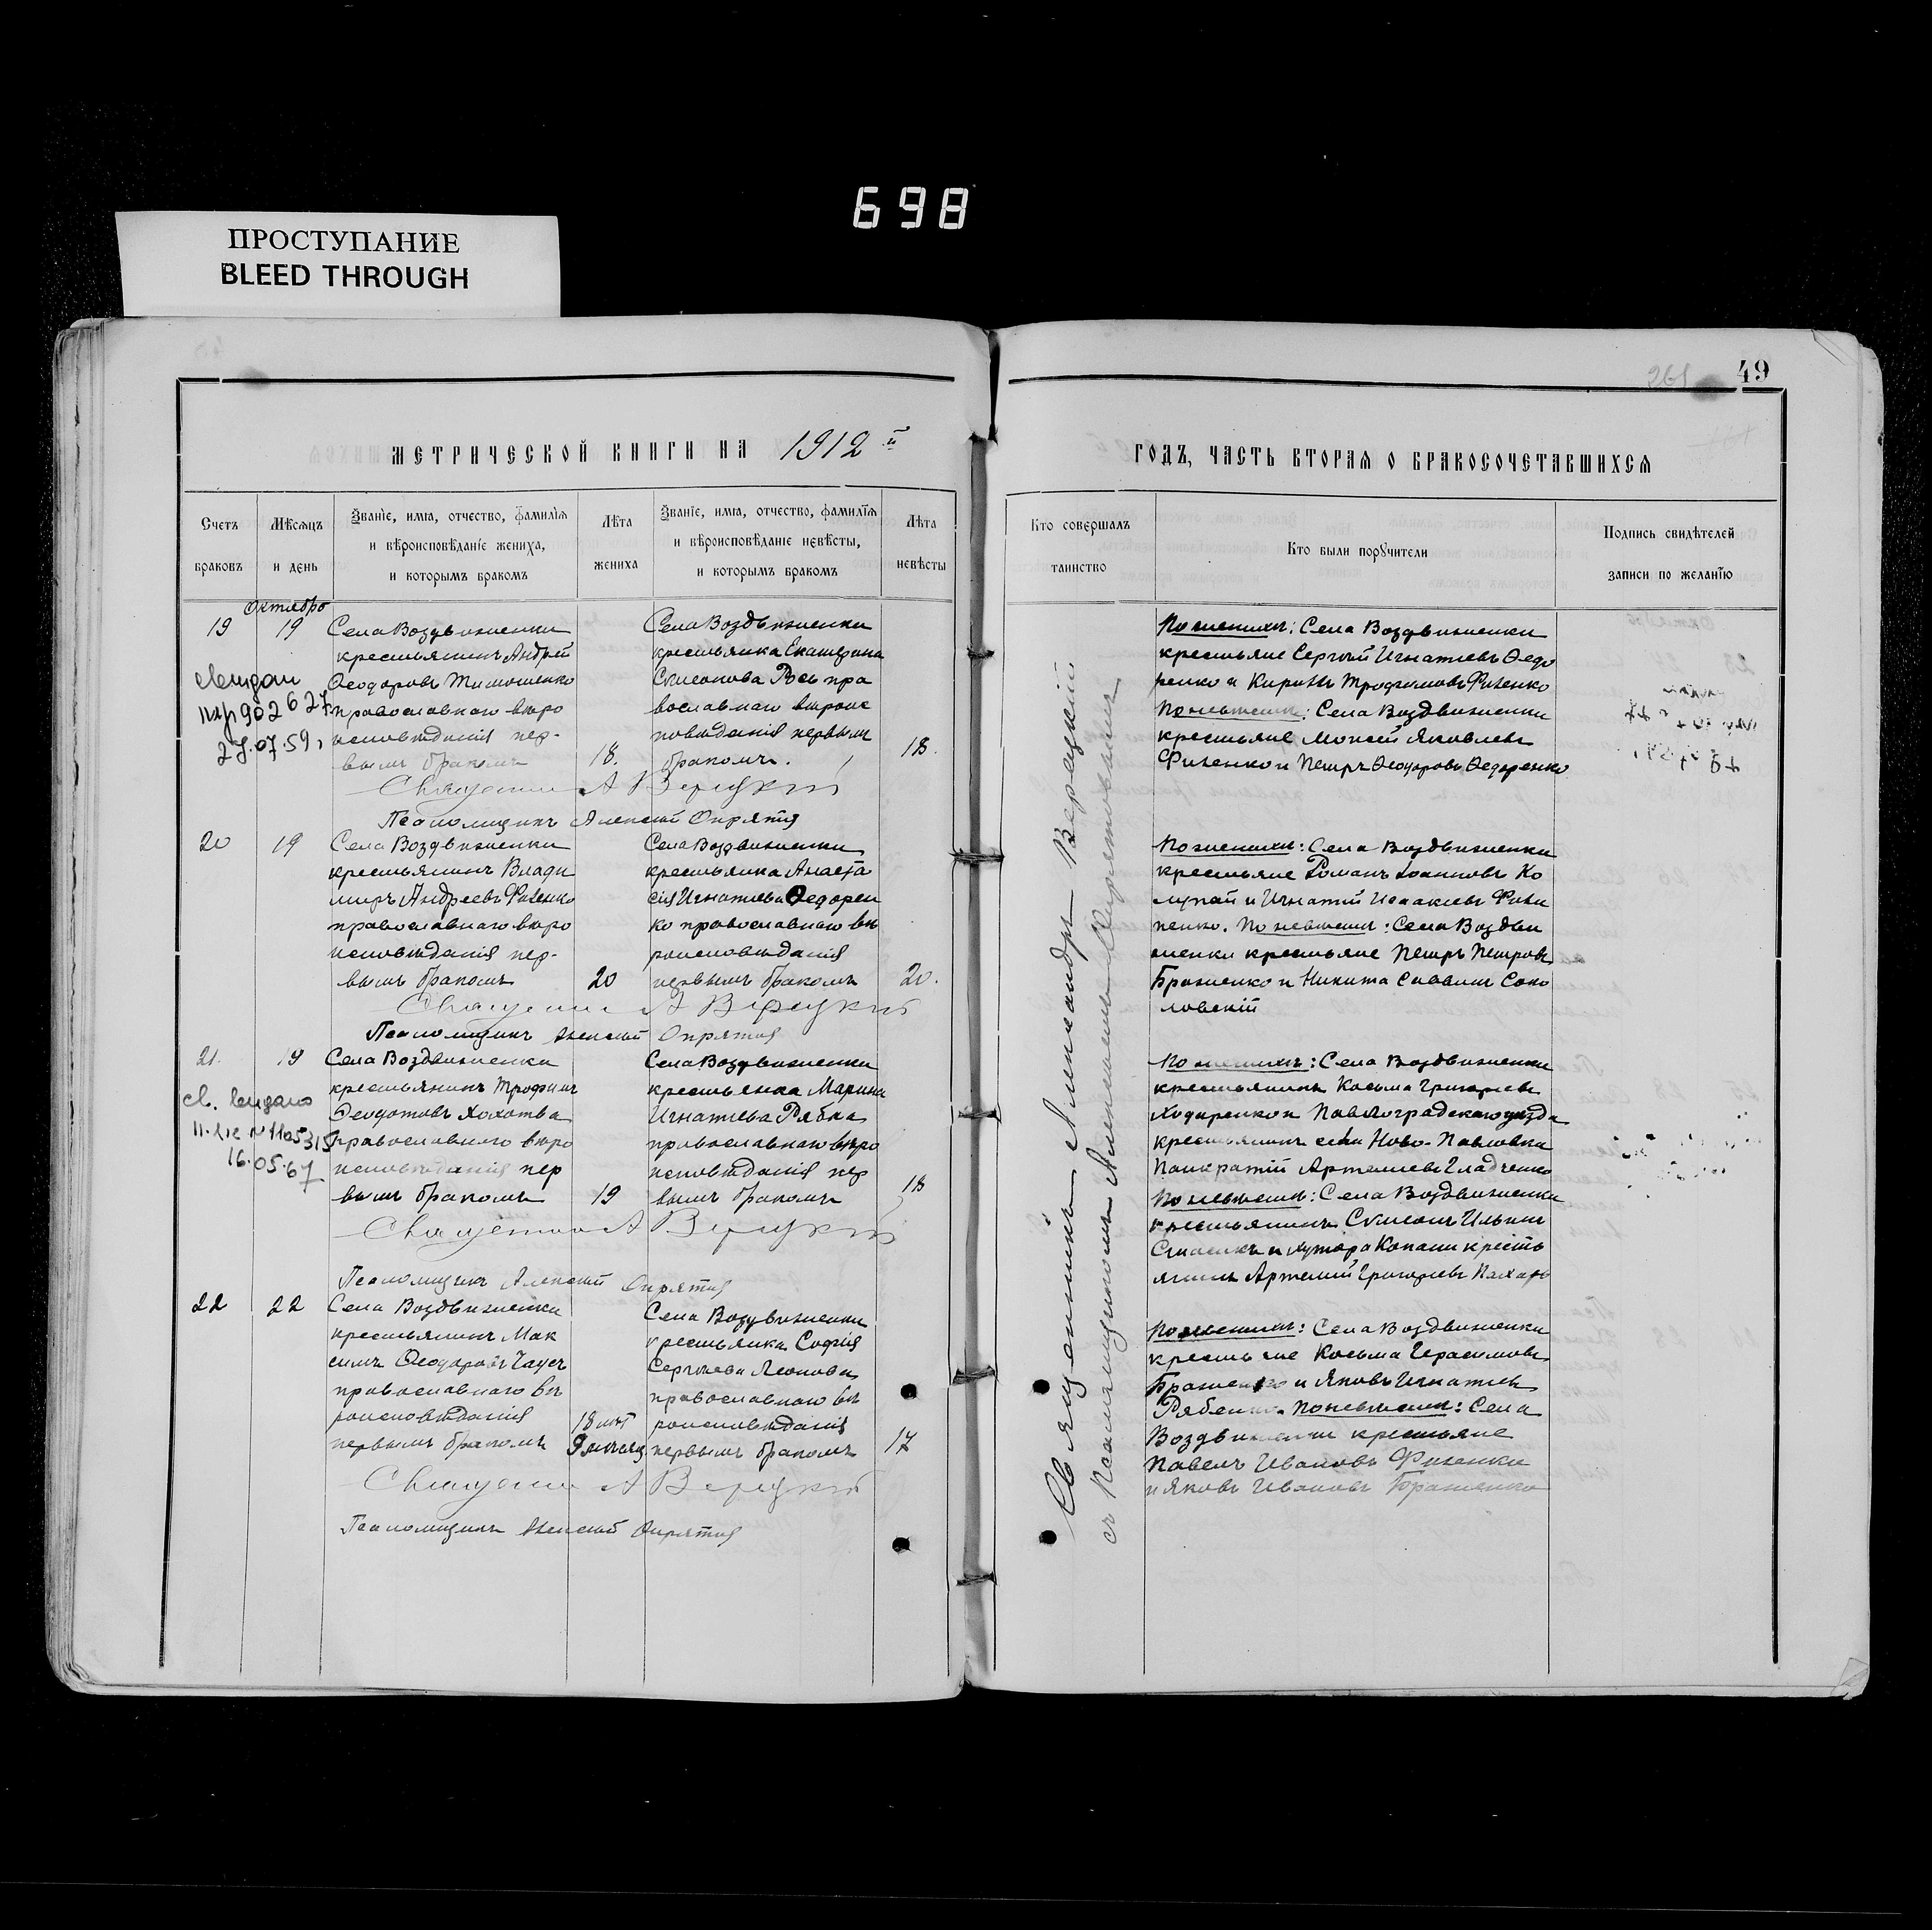 698
ПРОСТУПАНИЕ
BLEED THROUGH
49
261
МЕТРИЧЕСКОЙ КНИГИ НА 1912 й
ГОДЪ, ЧАСТЬ ВТОРАЯ О БРАКОСОЧЕТАВШИХСЯ
Счетъ
браковъ
Мѣсяцъ
и день
Званіе, имя, отчество, фамилія
и вѣроисповѣданіе жениха,
и которымъ бракомъ
Лѣта
жениха
Званіе, имя, отчество, фамилія
и вѣроисповѣданіе невѣсты,
и которымъ бракомъ
Лѣта
невѣсты
Кто совершалъ
таинство
Кто были поручители
Подпись свидѣтелей
записи по желанію
Октября
19
19
Села Воздвиженки
крестьянинъ Андрей
Феодоровъ Тимошенко
православнаго вѣро
исповѣданія пер-
вымъ бракомъ
18.
Села Воздвиженки
крестьянка Екатерина
Сѵмеонова Рось пра
вославнаго вѣроис
повѣданія первымъ
бракомъ.
18.
902627
27.07.59
Священникъ А Верецкій
Псаломщикъ Алексій Опрятня
По женихѣ: Села Воздвиженки
крестьяне Сергѣй Игнатіевъ Ѳедо
ренко и Кириллъ Трофимовъ Физенко
По невѣстѣ: Села Воздвиженки
крестьяне Моисей Яковлевъ
Физенко и Петръ Ѳеодоровъ Ѳедоренко
20
19
Села Воздвиженки
крестьянинъ Влади
миръ Андреевъ Физенко
православнаго вѣро
исповѣданія пер-
вымъ бракомъ
20
Села Воздвиженки
крестьянка Анаста
сія Игнатіева Ѳедорен
ко православнаго вѣ
роисповѣданія
первымъ бракомъ
20.
Священникъ А Верецкій
Псаломщикъ Алексій Опрятня
По женихѣ: Села Воздвиженки
крестьяне Романъ Іоанновъ Ко
лупай и Игнатій Исаакіевъ Фили
пенко. По невѣстѣ: Села Воздви
женки крестьяне Петръ Петровъ
Браженко и Никита Саввинъ Соко
ловскій
21.
19
Села Воздвиженки
крестьянинъ Трофимъ
Ѳеодотовъ Хохотва
православнаго вѣро
исповѣданія пер
вымъ бракомъ
19
Села Воздвиженки
крестьянка Марина
Игнатіева Рябка
православнаго вѣро
исповѣданія пер
вымъ бракомъ
18
16.05.67
Священникъ А Верецкій
Псаломщикъ Алексій Опрятня
По женихѣ: Села Воздвиженки
крестьянинъ Косьма Григорьевъ
Ходаренко и Павлоградскаго уѣзда
крестьянинъ села Ново-Павловки
Панкратій Артемьевъ Гладченко
По невѣстѣ: Села Воздвиженки
крестьянинъ Сѵмеонъ Ильинъ
и хутора Копани кресть
янинъ Артемій Григорьевъ
22
22
Села Воздвиженки
крестьянинъ Мак
симъ Ѳеодоровъ Чаусъ
православнаго вѣ
роисповѣданія
первымъ бракомъ
18 лѣтъ
9 мѣсяц
Села Воздвиженки
крестьянка Софія
Сергѣева Леонова
православнаго вѣ
роисповѣданія
первымъ бракомъ
17
Священникъ А Верецкій
Псаломщикъ Алексій Опрятня
По женихѣ: Села Воздвиженки
крестьяне Косьма Герасимовъ
Браженко и Яковъ Игнатіевъ
Рябенко. По невѣстѣ: Села
Воздвиженки крестьяне
Павелъ Ивановъ Физенки
и Яковъ Ивановъ Браженко
Священникъ Александръ Верецкій
съ Псаломщикомъ Алексіемъ Опрятнымъ